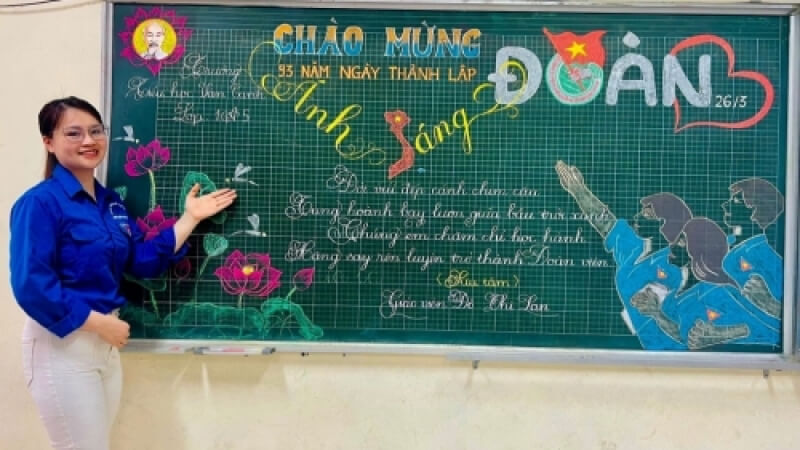 CHÀO MỪNG
93 NĂM NGÀY THÀNH LẬP
ĐOÀN
26/3
Trường
Tiểu học Vân Canh
Lớp
Ánh sáng
Đời vui đẹp cánh chim câu
Tung hoành bay lượn giữa bầu trời xanh
Chúng em chăm chỉ học hành
Hăng say rèn luyện trở thành Đoàn viên
(Sưu tầm)
Giáo viên Đỗ Thị Lan